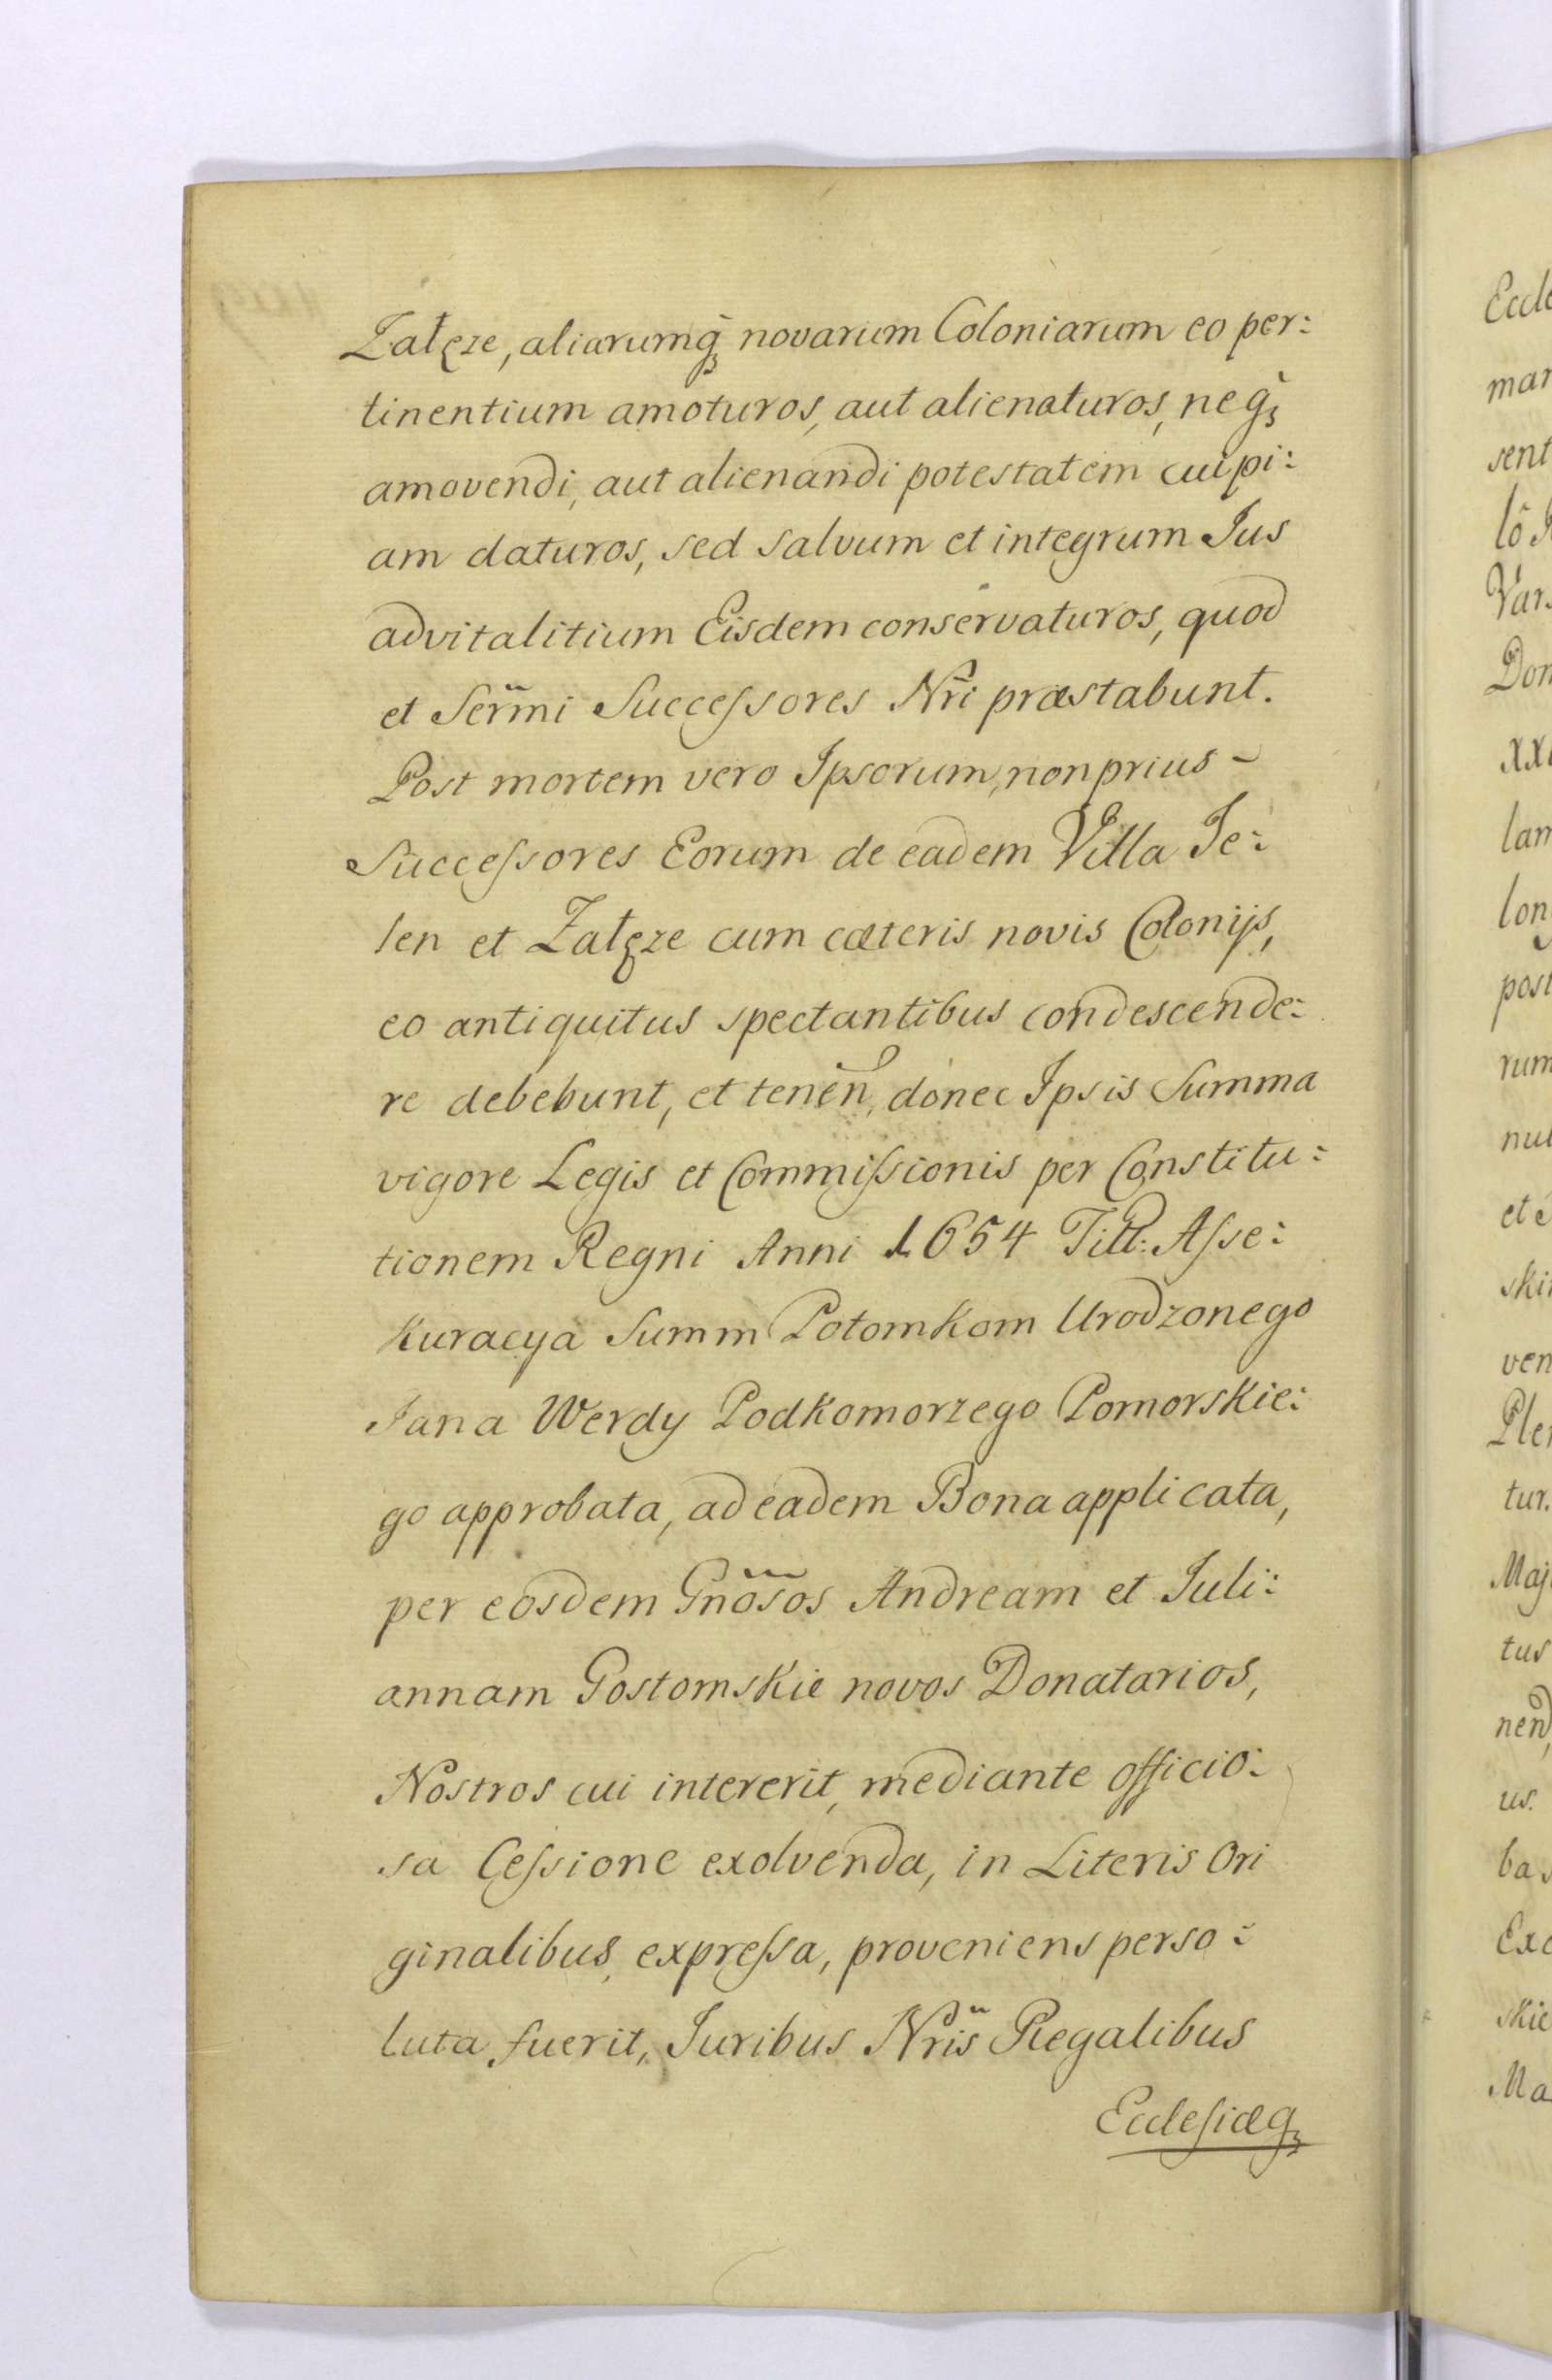 Załęze, aliarumq̀ꝫ novarum Coloniarum eo per:
tinentium amoturos, aut alienaturos, neq̀ꝫ
amovendi, aut alienandi potestatem cuipi:
am daturos, sed salvum et integrum Jus
advitalitium Eisdem conservaturos, quod
et Serm̃i Succeſsores Nr̃i præstabunt.
Post mortem vero Ipsorum, non prius -
Succeſsores Eorum de eadem Villa Je:
len et Załęze cum cæteris novis Colonijs,
eo antiquitus spectantibus condescende:
re debebunt, et tenen̄, donec Ipsis Summa
vigore Legis et Commiſsionis per Constitu:
tionem Regni Anni 1654 Titt: Aſse:
kuracya Summ Potomkom Urodzonego
Jana Werdy Podkomorzego Pomorskie:
go approbata, ad eadem Bona applicata,
per eosdem Gnõsos Andream et Juli:
annam Gostomskie novos Donatarios,
Nostros cui intererit, mediante officio:
sa Ceſsione exolvenda, in Literis Ori
ginalibus expreſsa, proveniens perso:
luta fuerit, Juribus Nr̃is Regalibus
Eccleſiæqꝫ
Eccle
mar
sent
lô J
Var
Don
XX
lam
lon
post
rum
nul
et e
ski
ven
Ple
tur.
Maj
tus
nen
us.
ba
Exc
skie
Ma